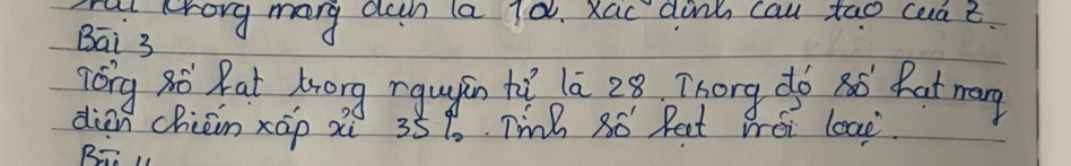 không mang điện là 10. Xác định cấu tạo của
Bài 3
Tổng số hạt trong nguyên tử là 28. Trong đó số hạt mang
điện chiếm xấp xỉ 35%. Tính số hạt mỗi loại.